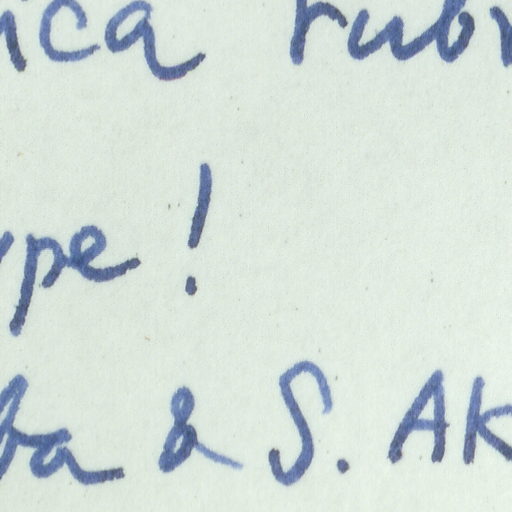 ica rub
ype!
ba & S. AK